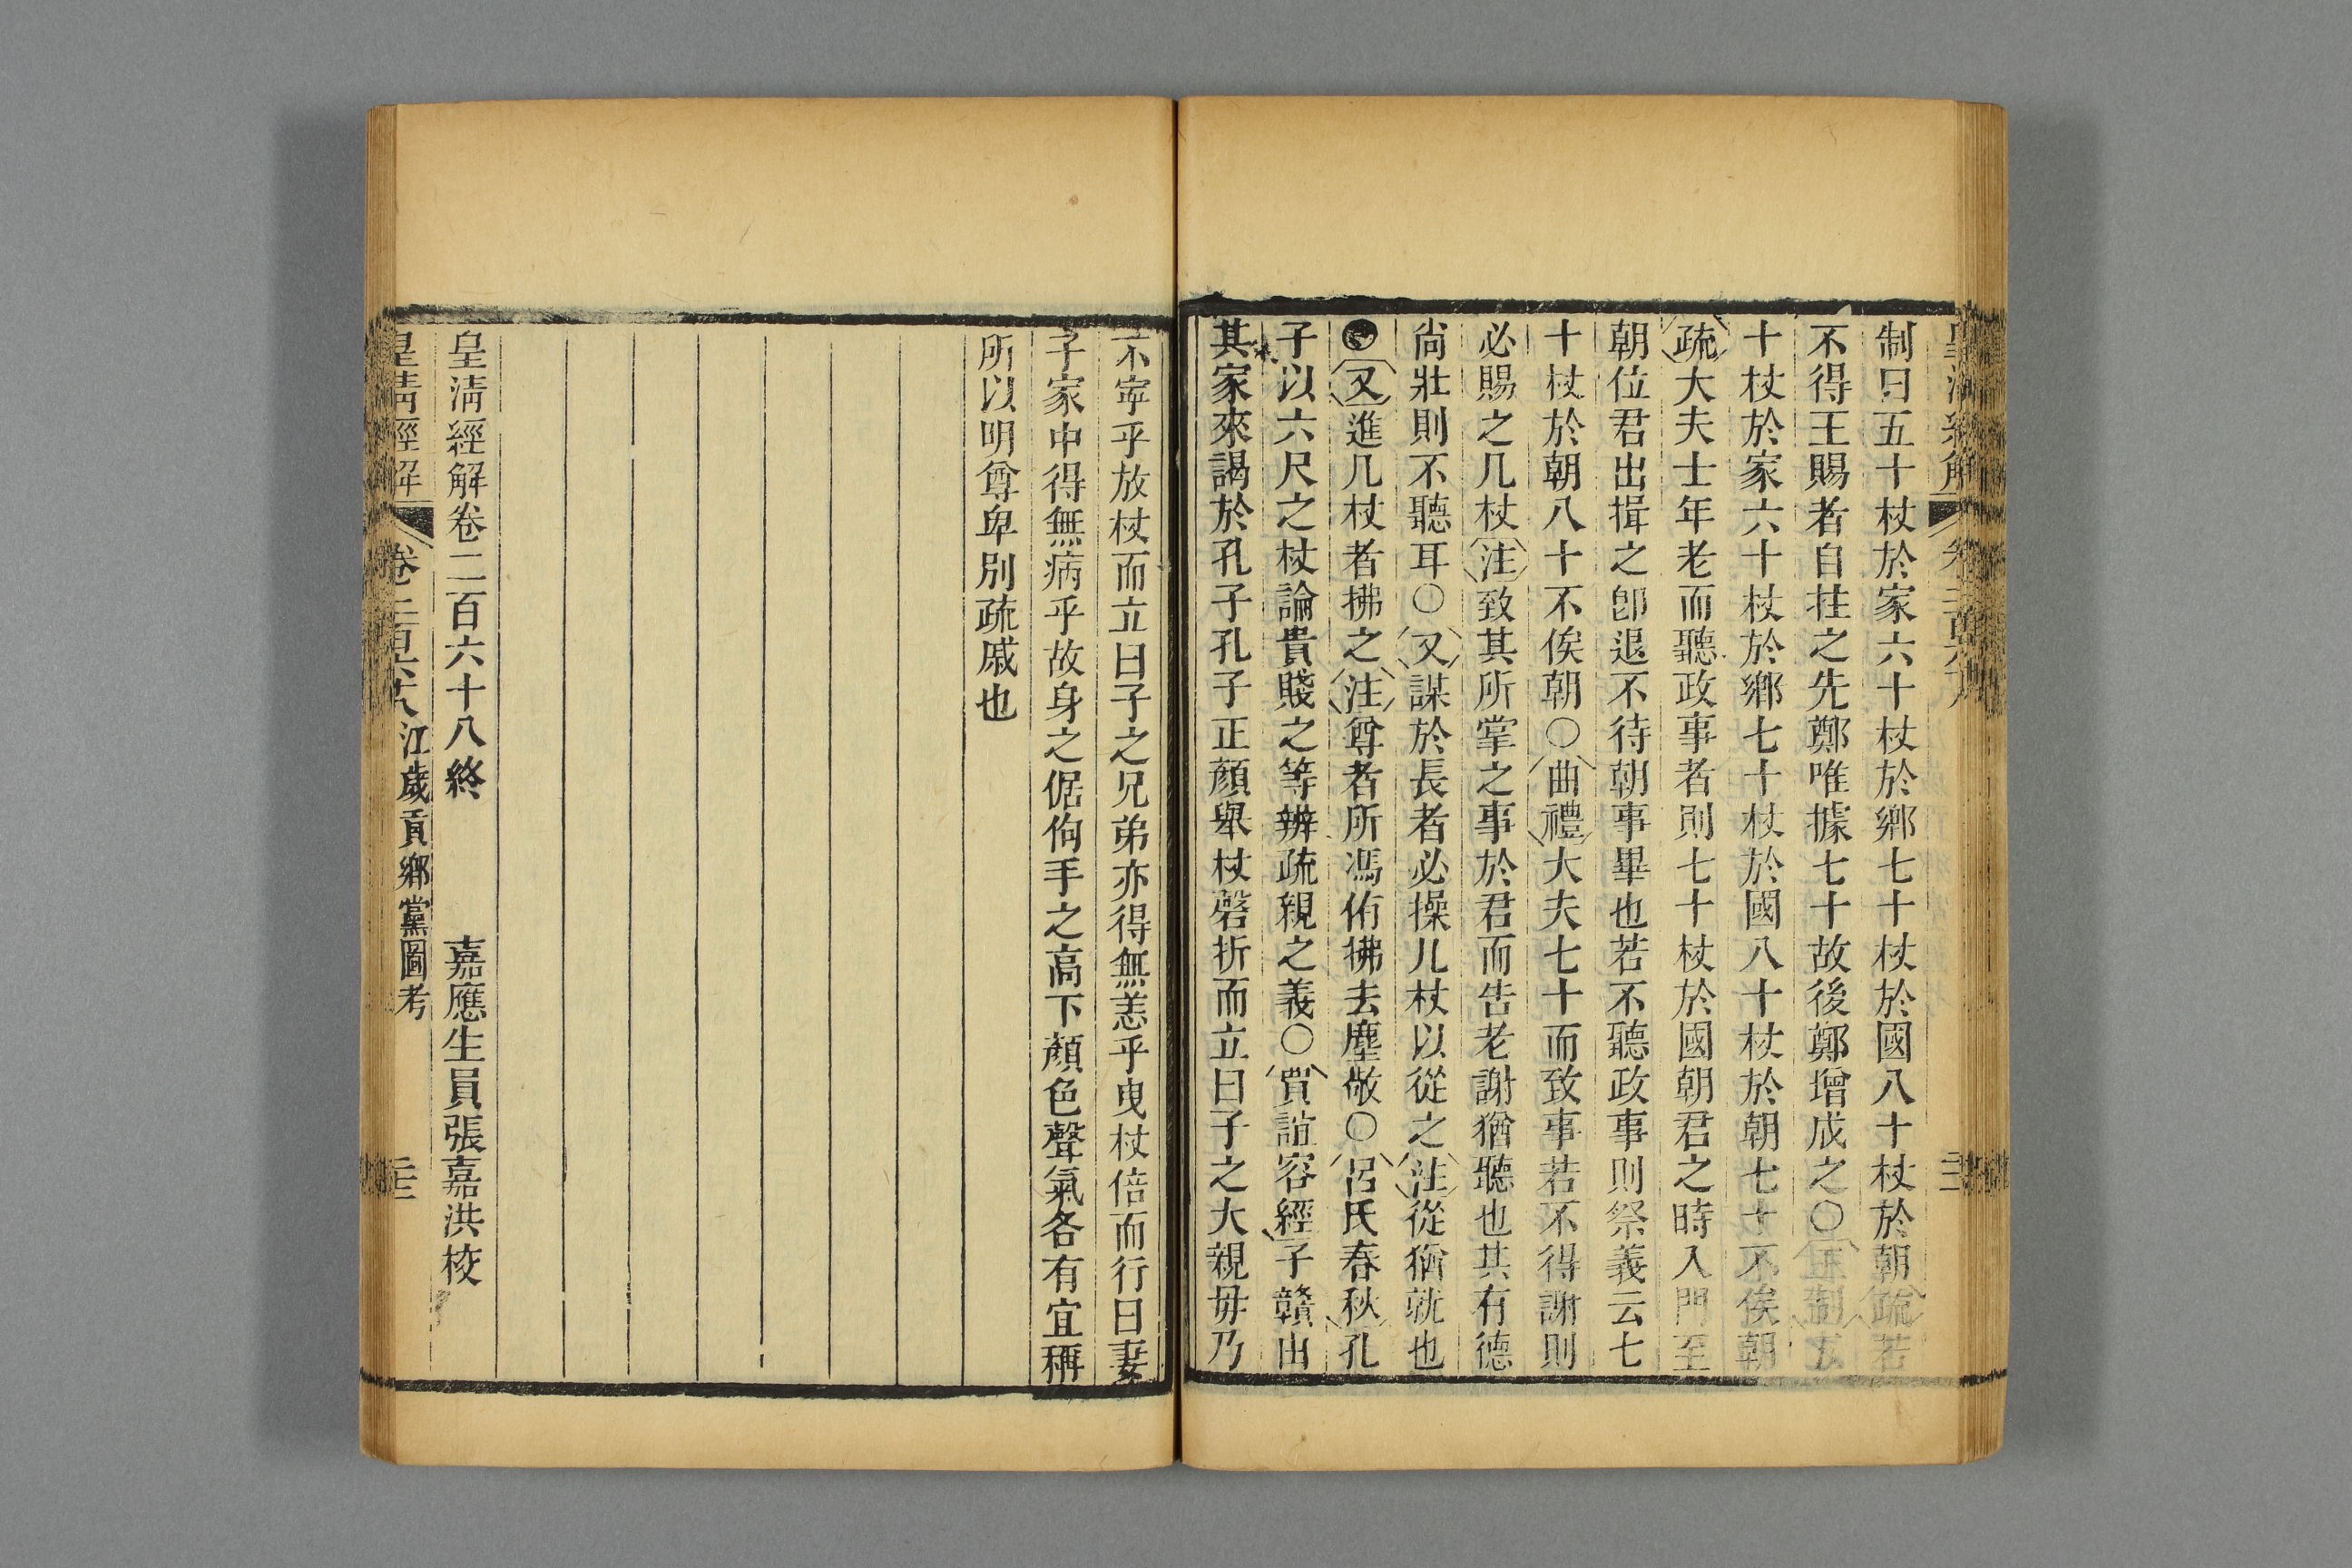 制曰五十杖於家六十杖於鄉七十杖於國八十杖於朝疏若
不得王賜者自拄之先鄭唯據七十故後鄭增成之〇王制五
十杖於家六十杖於鄉七十杖於國八十杖於朝七十不俟朝
疏大夫士年老而聽政事者則七十杖於國朝君之時入門至
朝位君出揖之卽退不待朝事畢也若不聽政事則祭義云七
十杖於朝八十不俟朝〇曲禮大夫七十而致事若不得謝則
必賜之几杖注致其所掌之事於君而告老謝猶聽也其有德
尙壯則不聽耳〇又謀於長者必操几杖以從之注從猶就也
又進几杖者拂之注尊者所馮侑拂去塵敬〇呂氏春秋孔
子以六尺之杖論貴賤之等辨疏親之義〇賈誼容經子贛由
其家來謁於孔子孔子正顏舉杖磬折而立曰子之大親毋乃
不寧乎放杖而立曰子之兄弟亦得無恙乎曳杖倍而行曰妻
子家中得無病乎故身之倨佝手之高下顏色聲氣各有宜稱
所以明尊卑別疏戚也
皇淸經解卷二百六十八終 嘉應生員張嘉洪校
皇淸經解 卷二百六十八 江歲貢鄉黨圖考